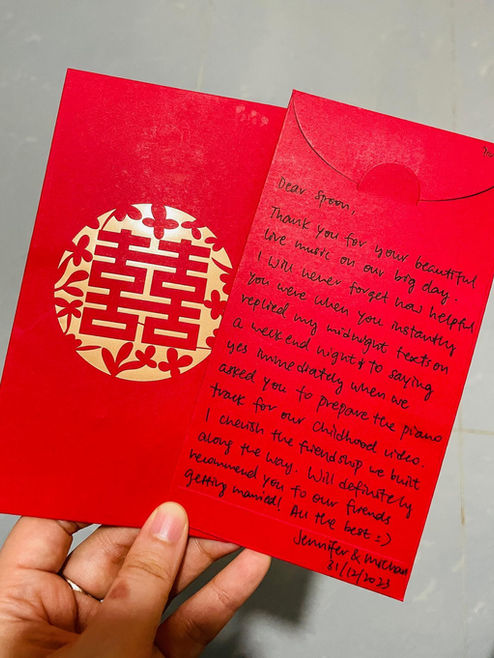 囍
Dear Spoon,
Thank you for your beautiful
live music on our big day.
I will never forget how helpful
you were when you instantly
replied my midnight texts on
a weekend night & to saying
yes immediately when we
asked you to prepare the piano
track for our childhood video.
I cherish the friendship we built
along the way. Will definitely
recommend you to our friends
getting married! All the best :)
Jennifer & Michael
31/12/2023